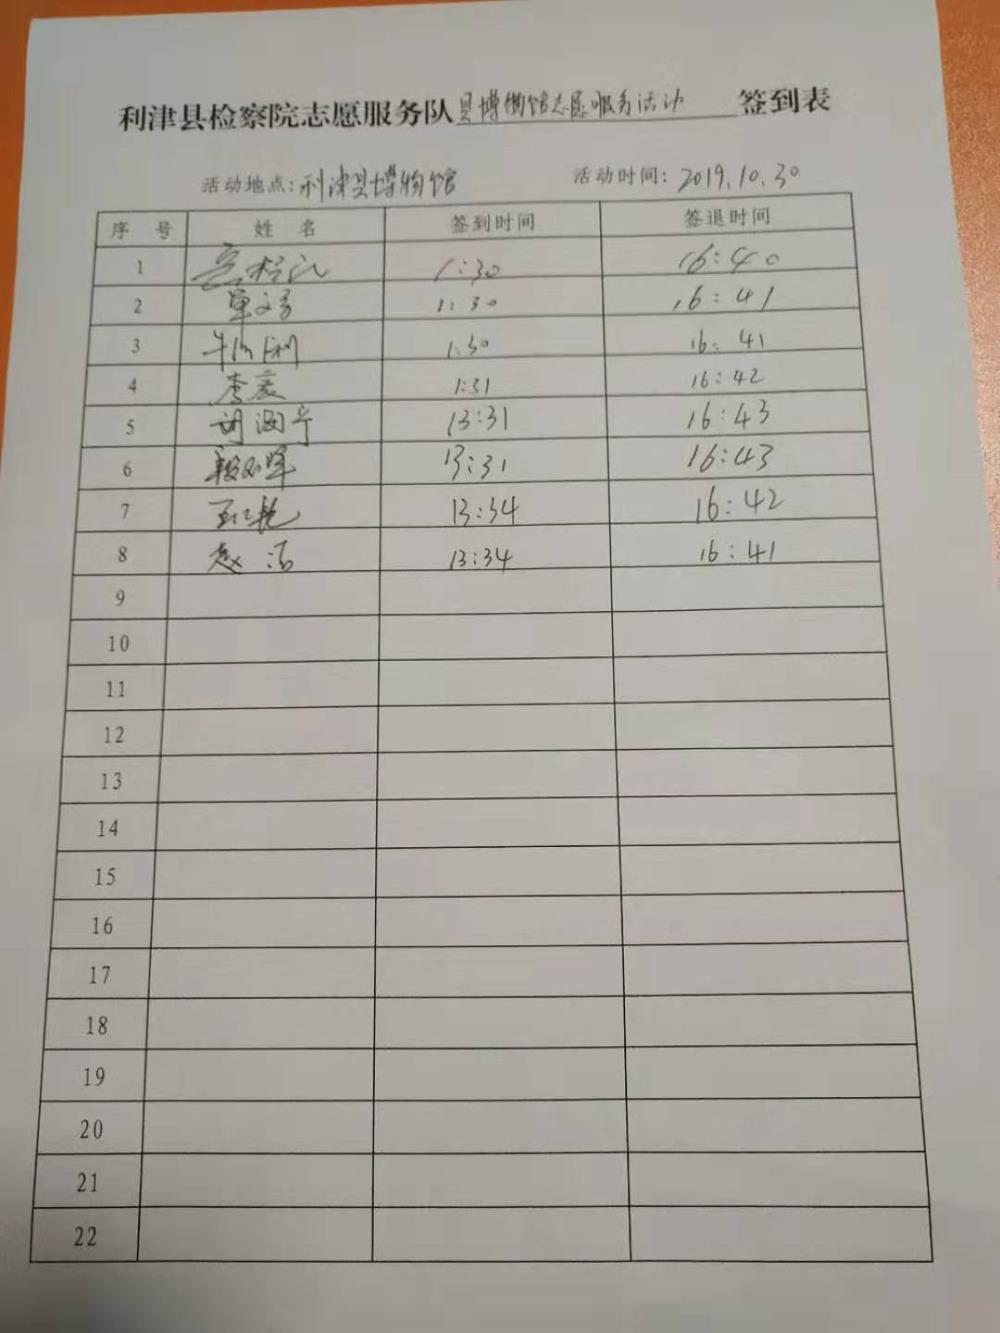 利津县检察院志愿服务队县博物馆志愿服务活动 签到表
活动地点:利津县博物馆 活动时间: 2019.10.30
序 号 姓 名 签到时间 签退时间
1 1:30 16:40
2 1:30 16:41
3 1:30 16:41
4 1:31 16:42
5 13:31 16:43
6 13:31 16:43
7 13:34 16:42
8 赵洁 13:34 16:41
9
10
11
12
13
14
15
16
17
18
19
20
21
22